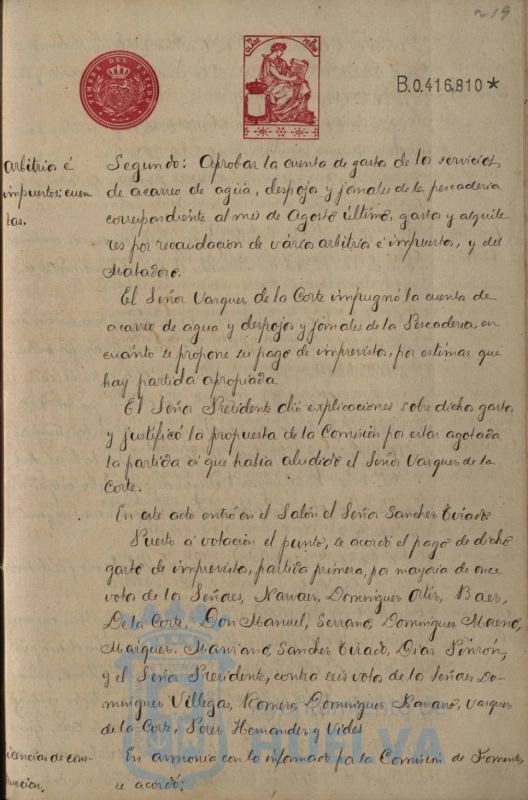 219
TIMBRE DEL ESTADO
CLASE
B.0.416.810*
arbitrios é
impuestos: cuen
tas.
Segundo: Aprobar la cuenta de gastos de los servicios
de acarreo de agua, despojos y jornales de la pescaderia
correspondiente al mes de Agosto último, gastos y alquile
res por recaudación de varios arbitrios é impuestos, y del
Matadero.
El Señor Vazquez de la Corte impugnó la cuenta de
acarreo de agua y despojos y jornales de la Pescaderia, en
cuánto se propone su pago de imprevistos, por estimar que
hay partida apropiada.
El Señor Presidente dió explicaciones sobre dichos gastos
y justificó la propuesta de la Comisión por estar agotada
la partida á que habia aludido el Señor Vazquez de la
Corte.
En este acto entró en el Salón el Señor Sanchez Tirado
Puesto á votación el punto, se acordó el pago de dicho
gasto de imprevistos, partida primera, por mayoria de once
votos de los Señores, Narvaez, Dominguez Ortiz, Baez,
De la Corte, Don Manuel, Serrano, Dominguez Moreno,
Marquez, Manzano, Sanchez Tirado, Diaz Pinzón,
y el Señor Presidente, contra seis votos de los Señores Do-
minguez Villegas, Romero, Dominguez Navarro, Vazquez
de la Corte, Perez Hernandez y Vides.
icencias de cons-
trucción.
En armonia con lo informado por la Comisión de Fomento,
se acordó:
Ayuntamiento de
HUELVA